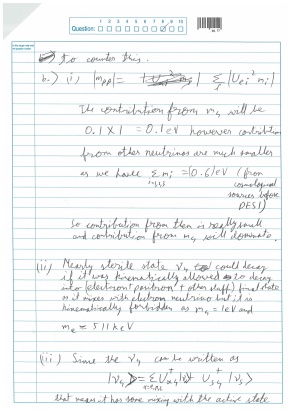 1 2 3 4 5 6 7 8 9 10
Question:
to counter this.
b.) (i) |m_ββ| = | Σ_i |U_ei² m_i|
The contribution from m₄ will be
0.1 × 1 = 0.1 eV however contribution
from other neutrinos are much smaller
as we have Σ m_i = 0.6 eV (from
cosmological
sources before
DESI)
So contribution from them is really small
and contribution from m₄ will dominate.
(ii) Nearly sterile state ν₄ could decay
if it was kinematically allowed to decay
into (electron + positron + other stuff) final state
as it mixes with electron neutrino but it is
kinematically forbidden as m₄ = 1 eV and
m_e = 511 keV
(iii) Since the ν₄ can be written as
|ν₄⟩ = Σ U_α4 |α⟩ + U_s4 |ν_s⟩
that means it has some mixing with the active state